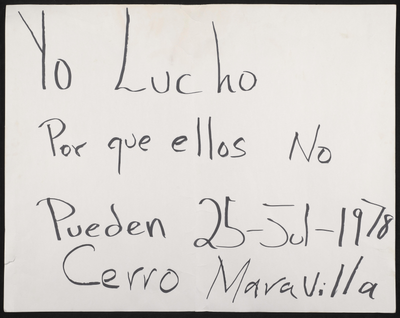 Yo Lucho
Por que ellos No
Pueden 25-Jul-1978
Cerro Maravilla